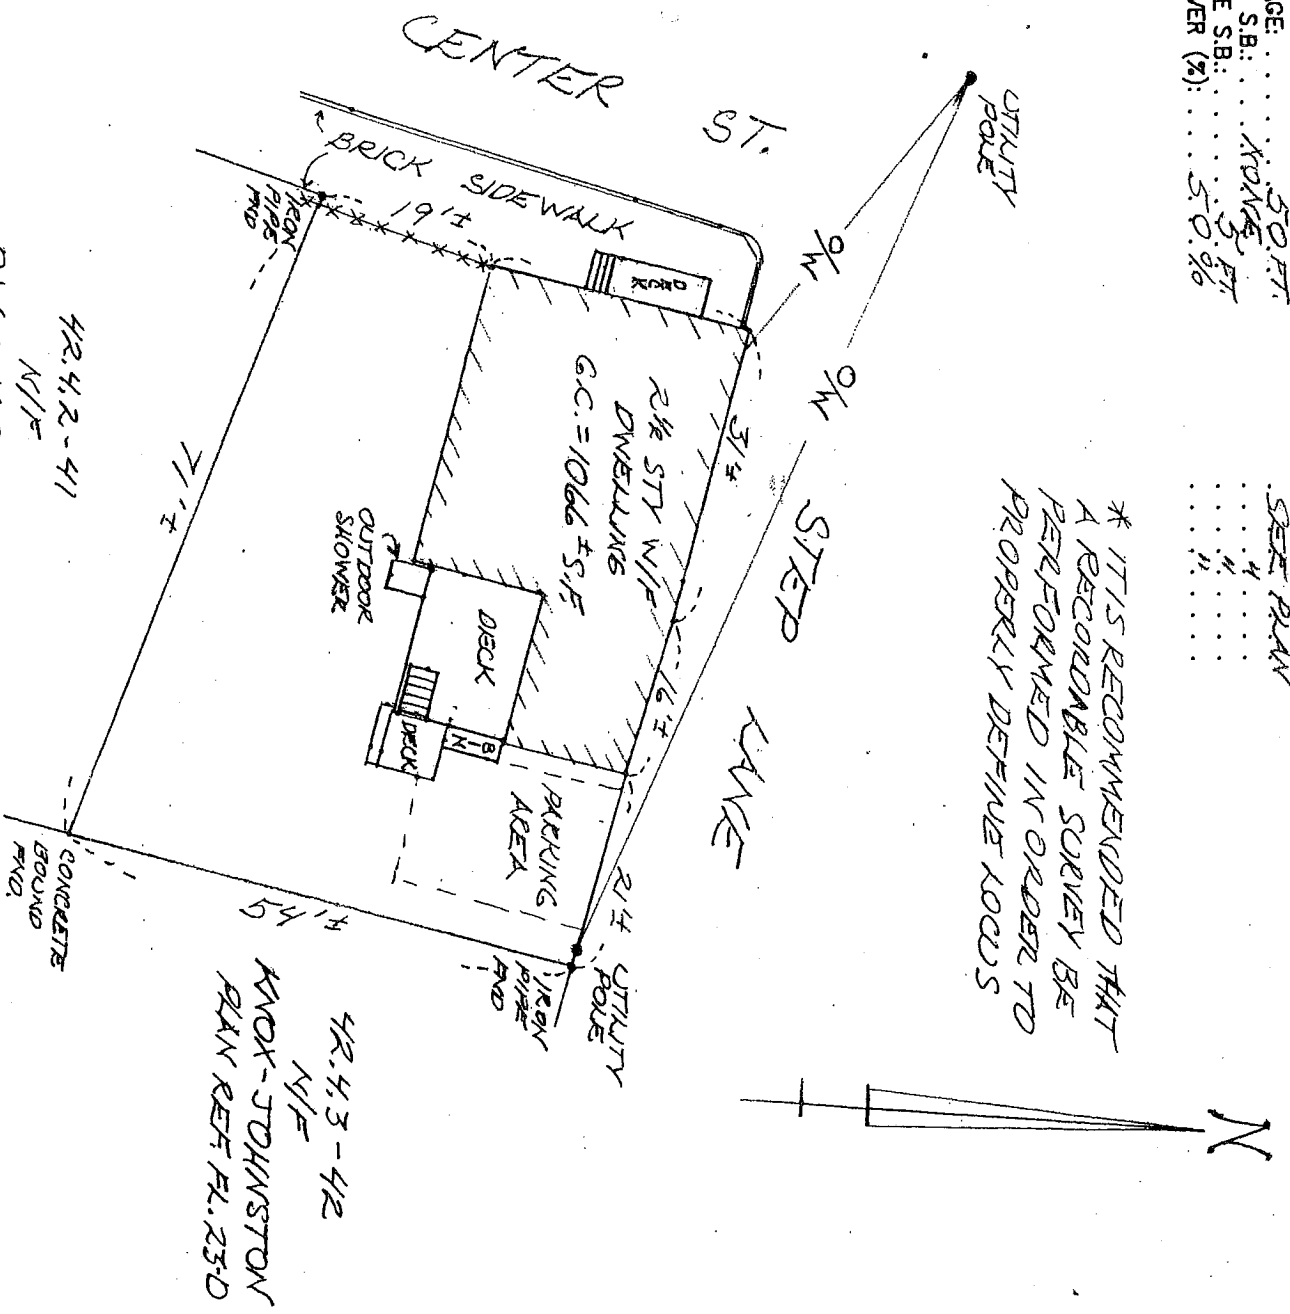 50 FT.
S.B.: NONE
S.B.: 5 FT.
(%): 50 %
SEE PLAN
"
"
"
* IT IS RECOMMENDED THAT
A RECORDABLE SURVEY BE
PERFORMED IN ORDER TO
PROPERLY DEFINE LOCUS
N
UTILITY
POLE
O/W
O/W
CENTER ST.
STEP LANE
BRICK SIDEWALK
19'±
IRON
PIPE
FND
DECK
31'±
16'±
21'±
2½ STY W/F
DWELLING
G.C. = 1066 ± S.F.
DECK
OUTDOOR
SHOWER
DECK
BIN
PARKING
AREA
UTILITY
POLE
IRON
PIPE
FND
71'±
54'±
CONCRETE
BOUND
FND.
42.4.2-41
N/F
42.4.3-42
N/F
KNOX-JOHNSTON
PLAN REF. FL. 23-D